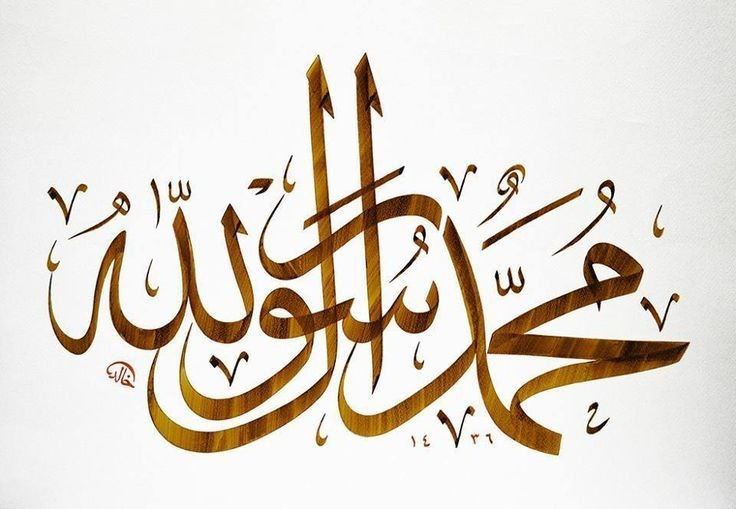 محمد رسول الله
خالد
١٤٣٦